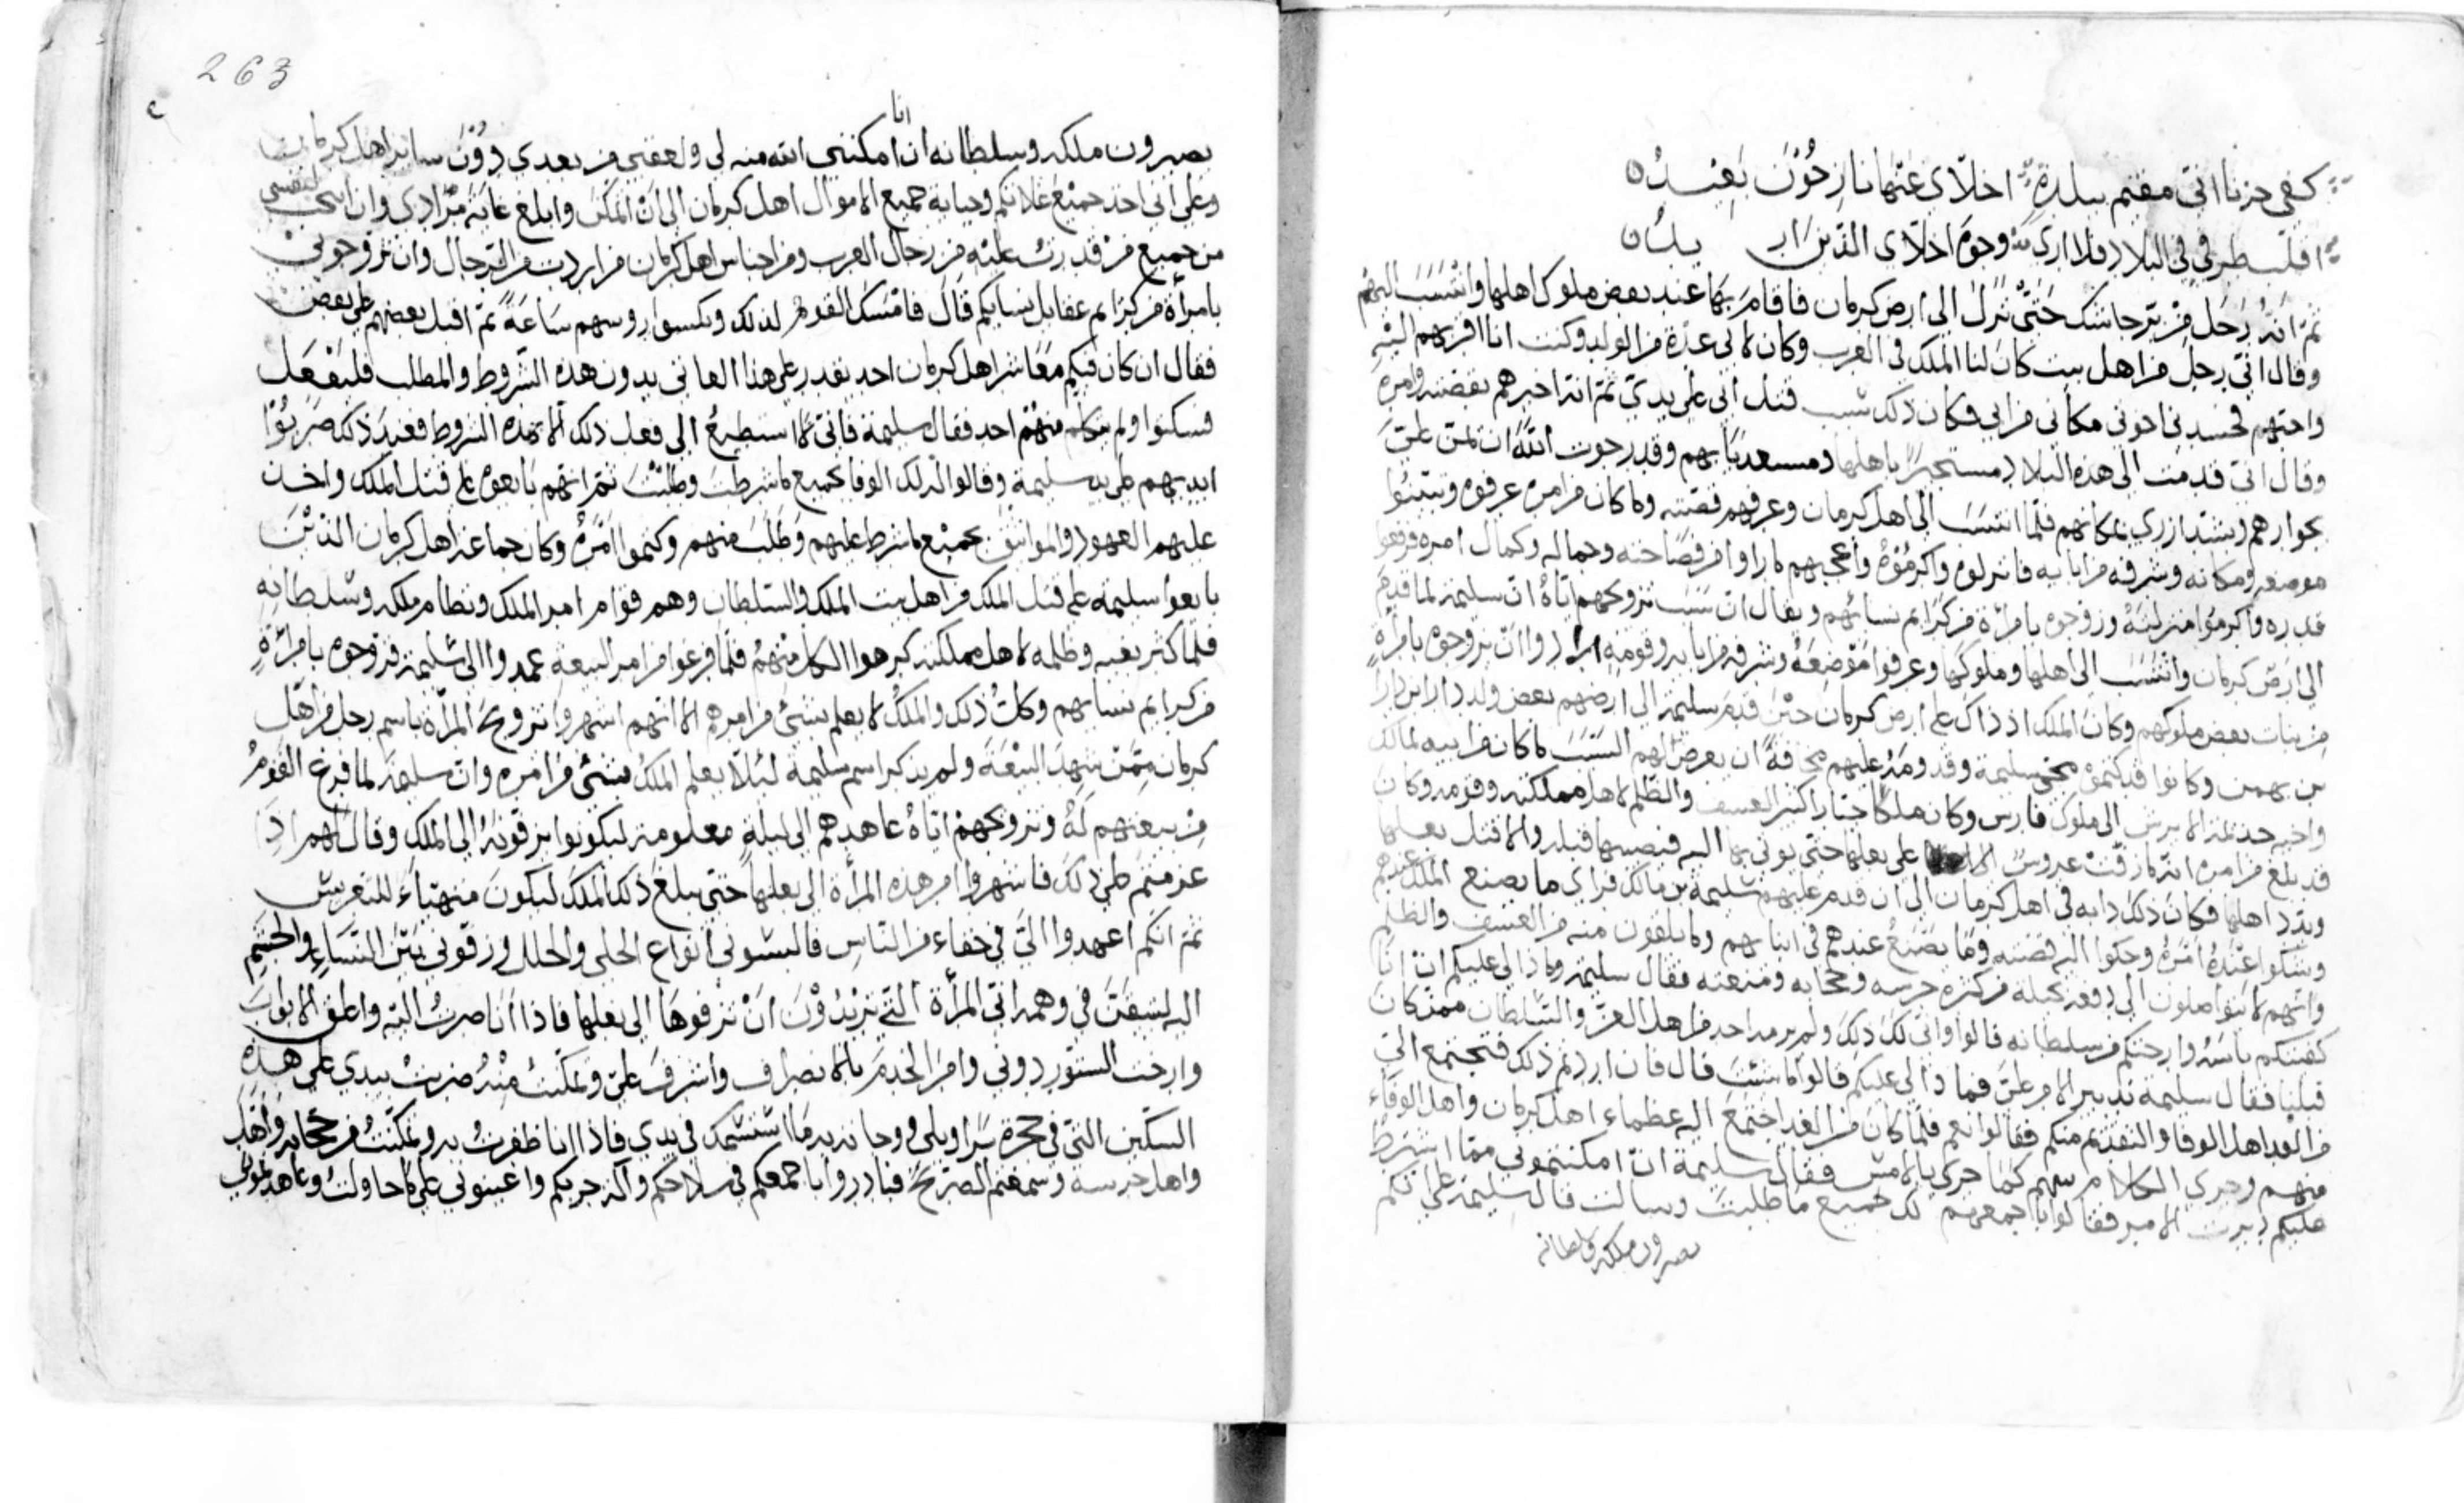 كفى حزنا اني مقيم ببلدة اخلّاي عنها نازحون بعيدُ
اقلب طرفي في البلاد فلا ارى وجوه اخلّاى الذين اريـــــــدُ
ثم انه رحل من برّ جاشك حتى نزل الى ارض كرمان فاقام بها عند بعض ملوك اهلها وانتسب اليهم
وقال اني رجل من اهل بيت كان لنا الملك في العرب وكان لابي عدّة من الولد وكنت انا اقربهم اليه
واحبّهم فحسدني اخوتي مكاني من ابي فكان ذلك سبب قتل ابي على يدي ثم انه اخبرهم بقصته وامره
وقال اني قدمت الى هذه البلاد مستجيرًا باهلها ومستعديًا بهم وقد رجوت الله ان يمنّ عليّ
بجوارهم ويشتد ازري بمكانهم فلمّا انتسب الى اهل كرمان وعرفهم قصته وما كان من امره عرفوه وتبيّنوا
موضعه ومكانه وشرفه من ابايه فانزلوه واكرموه واعجبهم ما راوا من فصاحته وجماله وكمال امره فرفعوا
قدره واكرموا منزلته وزوجوه بامرأة من كرايم نسائهم ويقال ان سبب تزويجهم اياه ان سليمة لما قدم
الى ارض كرمان وانتسب الى اهلها وملوكها وعرفوا موضعه وشرفه من ابايه وقومه ارادوا ان يزوجوه بامرأة
من بنات بعض ملوكهم وكان الملك اذ ذاك على ارض كرمان حين قدم سليمة الى ارضهم بعض ولد دارا بن دارا
بن بهمن وكانوا قد كتموه مجيء سليمة وقدومه عليهم مخافة ان يعرض لهم السبب ما كان من ابيه لمالك
واخيه جذيمة الابرش الى ملوك فارس وكان ملكًا جبّارا كثير العسف والظلم لاهل مملكته وقومه وكان
قد بلغ من امره انه ما زفّت عروسٌ على بعلها حتى يوتى بها اليه فيصيبها قبله والا قتل بعلها
وبدد اهلها فكان ذلك دابه في اهل كرمان الى ان قدم عليهم سليمة بن مالك فراى ما يصنع الملك عندهم
وشكوا عنده امره وحكوا اليه قصته وما يصنع عندهم في ابنائهم وما يلقون منه من العسف والظلم
وانهم لا يتواصلون الى دفعه بحيلة من كثرة حرسه وحجابه ومنعته فقال سليمة وما ذا لي عليكم ان انا
كفيتكم باسه وارحتكم من سلطانه قالوا وانى لك ذلك ولم يرمه احد من اهل العز والسلطان ممن كان
قبلنا فقال سليمة تدبير الامر عليّ فما ذا لي عليكم قالوا ما شئت قال فان اردتم ذلك فيجتمع اليّ
من الغد اهل الوفا والتقدم منكم فقالوا نعم فلمّا كان من الغد اجتمع اليه عظماء اهل كرمان واهل الوفاء
منهم وجرى الكلام بينهم كما جرى بالامس فقال سليمة ان امكنتموني مما اشترط
عليكم دبرت الامر فقالوا باجمعهم لك جميع ما طلبت وسالت قال سليمة على انكم
تصيرون ملكه وسلطانه
263
تصيرون ملكه وسلطانه ان انا امكنني الله منه لي ولعقبي من بعدي دون ساير اهل كرمان
وعلى اني اخذ جميع غلاتكم وجباية جميع الاموال اهل كرمان الى ان اتمكن وابلغ غاية مرادي وان انتخب لنفسي
من جميع من قدرت عليه من رجال العرب ومن اجناس اهل كرمان من اردت من الرجال وان تزوجوني
بامرأة من كرايم عقايل نسايكم قال فامسك القوم لذلك ونكسوا روسهم ساعة ثم اقبل بعضهم على بعض
فقال ان كان فيكم معاشر اهل كرمان احد يقدر على هذا العاني بدون هذه الشروط والمطلب فليفعل
فسكتوا ولم يتكلم منهم احد فقال سليمة فاني لا استطيع الى فعل ذلك الا بهذه الشروط فعند ذلك ضربوا
ايديهم على يد سليمة وقالوا لذلك الوفا بجميع ما شرطت وطلبت ثم انهم بايعوه على قتل الملك واخذ
عليهم العهود والمواثيق بجميع ما شرط عليهم وطلب منهم وكتموا امره وكان جماعة اهل كرمان الذين
بايعوا سليمة على قتل الملك من اهل بيت الملك والسلطان وهم قوام امر الملك ونظام ملكه وسلطانه
فلما كثر بغيه وظلمه لاهل مملكته كرهوا الكل منهم فلمّا فرغوا من امر البيعة عمدوا الى سليمة فزوجوه بامرأة
من كرايم نسايهم وكان ذلك والملك لا يعلم بشئ من امرهم الا انهم اشهروا تزويج المرأة باسم رجل من اهل
كرمان ممّن شهد البيعة ولم يذكر اسم سليمة لئلا يعلم الملك بشئ من امره وان سليمة لما فرغ القوم
من بيعتهم له وتزويجهم اياه عاهدهم الى ليلة معلومة ليكونوا يزفونه الى الملك وقال لهم اذا
عزمتم على ذلك فاشهروا امر هذه المرأة الى بعلها حتى يبلغ ذلك الملك ليكون متهيّاء للتعريس
ثم انكم اعهدوا اليّ في خفاء من الناس فالبسوني انواع الحلي والحلل وزفوني بين النساء والحشم
اليه ليسبق في وهمه اني المرأة التي تريدون ان تزفوها الى بعلها فاذا انا صرت اليه واغلق الابواب
وارخت الستور دوني وامر الخدم بالانصراف واشرف عليّ وتمكّنت منه ضربت بيدي على هذه
السكين التي في حجزة سراويلي ووجاته به ما استمسك في يدي فاذا انا ظفرت به وتمكنت من حجابه واهل
واهل حرسه وسمعتم الصريخ فبادروا باجمعكم في سلاحكم والة حربكم واعينوني على ما حاولت وعاهدتموني